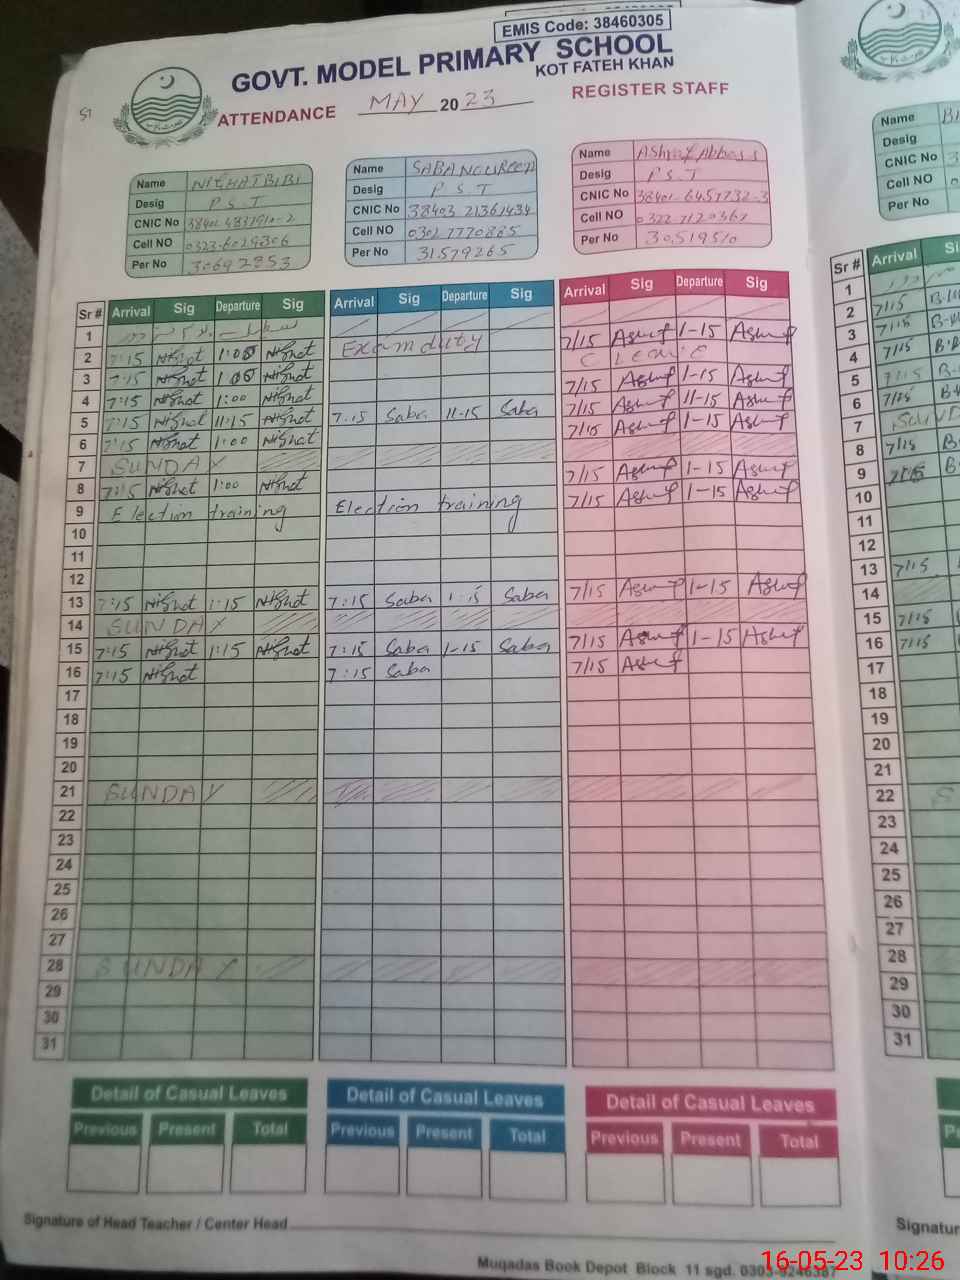 EMIS Code: 38460305
GOVT. MODEL PRIMARY SCHOOL
KOT FATEH KHAN
51
ATTENDANCE MAY 2023 REGISTER STAFF
Name NIGHAT BIBI
Desig P.S.T
CNIC No
Cell NO 0323-6029306
Per No 30692353
Name SABA NOUREEN
Desig P.S.T
CNIC No 38403 21361434
Cell NO 0302 7770885
Per No 31579265
Name Ashraf Abbass
Desig P.S.T
CNIC No 38401-6451732-3
Cell NO 0322-7120367
Per No 30519510
Sr # Arrival Sig Departure Sig Arrival Sig Departure Sig Arrival Sig Departure Sig
1
2 7:15 Nighat 1:00 Nighat Exam duty 7/15 Ashraf 1-15 Ashraf
3 7:15 Nighat 1:00 Nighat
4 7:15 Nighat 1:00 Nighat 7/15 Ashraf 1-15 Ashraf
5 7:15 Nighat 11:15 Nighat 7:15 Saba 11-15 Saba 7/15 Ashraf 11-15 Ashraf
6 7:15 Nighat 1:00 Nighat 7/15 Ashraf 1-15 Ashraf
7 SUNDAY
8 7:15 Nighat 1:00 Nighat 7/15 Ashraf 1-15 Ashraf
9 Election training Election training 7/15 Ashraf 1-15 Ashraf
10
11
12
13 7:15 Nighat 1:15 Nighat 7:15 Saba 1:15 Saba 7/15 Ashraf 1-15 Ashraf
14 SUNDAY
15 7:15 Nighat 1:15 Nighat 7:15 Saba 1-15 Saba 7/15 Ashraf 1-15 Ashraf
16 7:15 Nighat 7:15 Saba 7/15 Ashraf
17
18
19
20
21 SUNDAY
22
23
24
25
26
27
28 SUNDAY
29
30
31
Detail of Casual Leaves Detail of Casual Leaves Detail of Casual Leaves
Previous Present Total Previous Present Total Previous Present Total
Signature of Head Teacher / Center Head
Muqadas Book Depot Block 11 sgd.
Name
Desig
CNIC No 3
Cell NO 0
Per No
Sr # Arrival
1
2 7/15
3 7/15
4 7/15
5 7/15
6 7/15
7
8 7/15
9 7/15
10
11
12
13 7/15
14
15 7/15
16 7/15
17
18
19
20
21
22 S
23
24
25
26
27
28
29
30
31
16-05-23 10:26